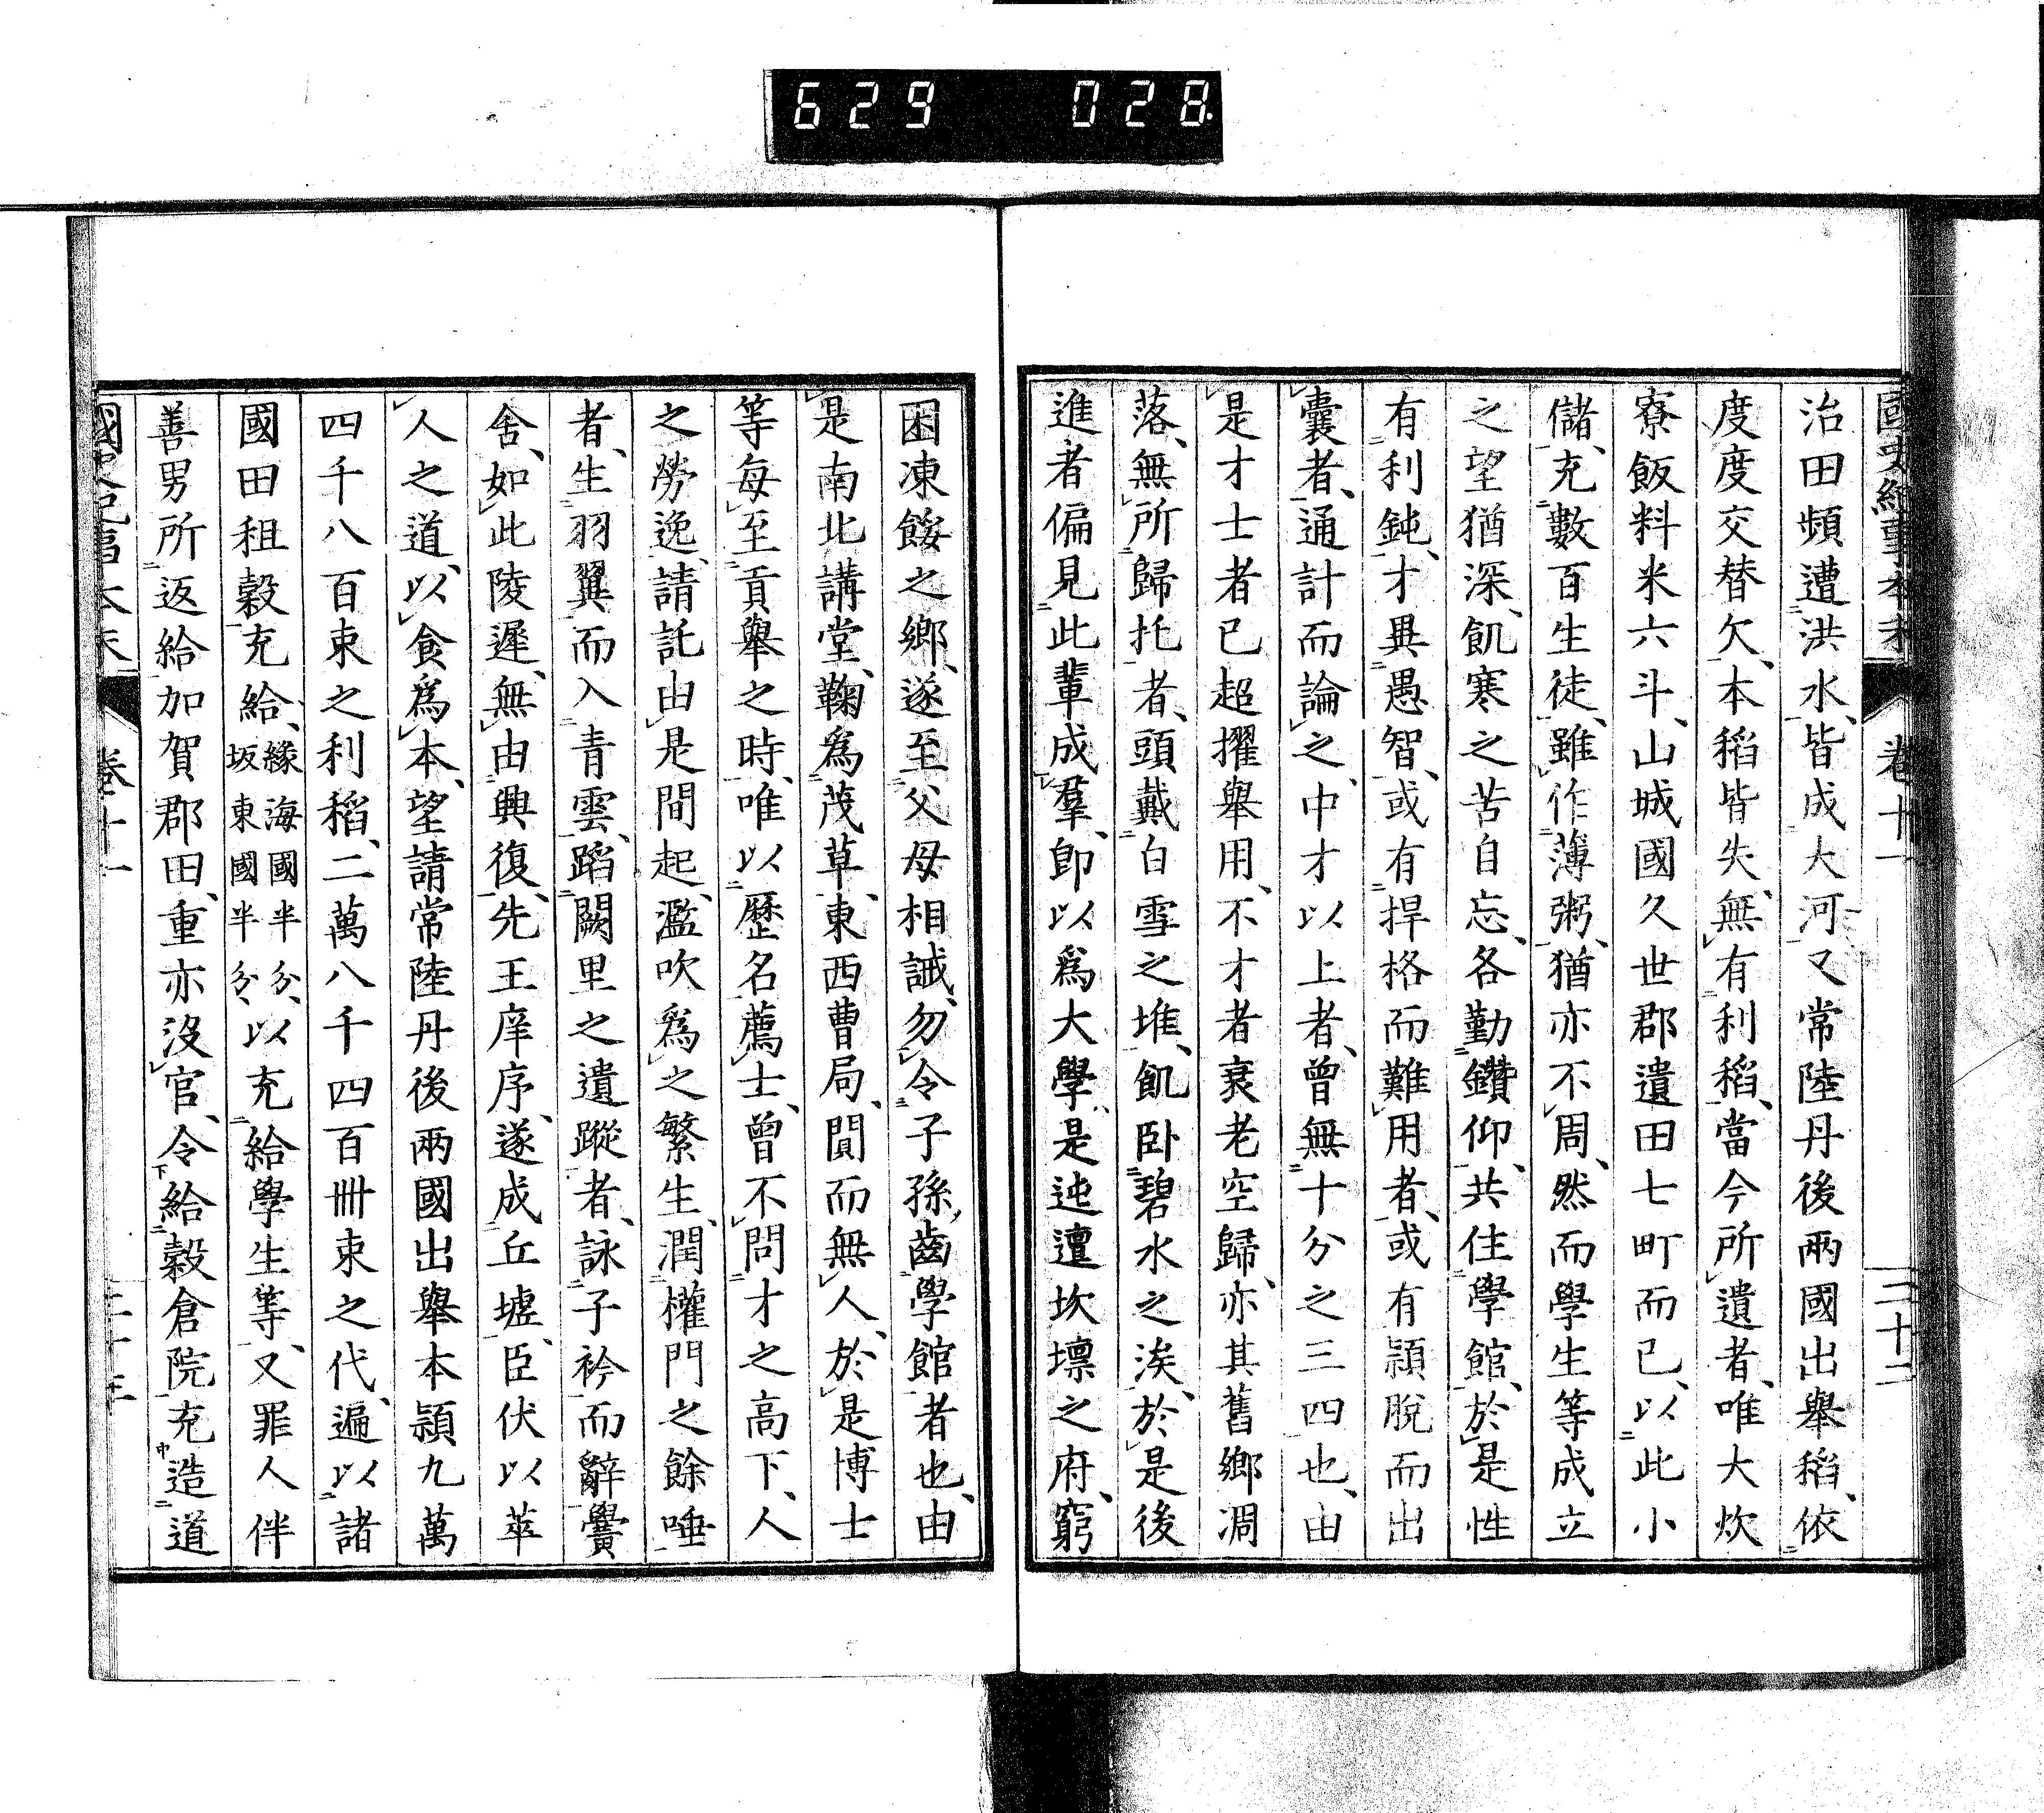 629 028
國史紀事本末 卷十一 三十二
治田頻遭洪水、皆成大河又常陸丹後兩國出舉稻、依
度度交替欠、本稻皆失、無有利稻、當今所遺者、唯大炊
寮飯料米六斗、山城國久世郡遺田七町而已、以此小
儲、充數百生徒、雖作薄粥、猶亦不周、然而學生等成立
之望猶深、飢寒之苦自忘、各勤鑽仰、共住學館、於是性
有利鈍、才異愚智、或有捍格而難用者、或有穎脫而出
囊者、通計而論之、中才以上者、曾無十分之三四也、由
是才士者已超擢舉用、不才者衰老空歸、亦其舊鄉凋
落、無所歸托者、頭戴白雪之堆、飢臥碧水之涘、於是後
進者偏見此輩成羣、卽以爲大學、是迍邅坎壈之府、窮
困凍餒之鄉、遂至父母相誡、勿令子孫、齒學館者也、由
是南北講堂、鞠爲茂草、東西曹局、閴而無人、於是博士
等每至貢舉之時、唯以歷名薦士、曾不問才之高下、人
之勞逸、請託由是間起、濫吹爲之繁生、潤權門之餘唾
者、生羽翼而入青雲、蹈闕里之遺蹤者、詠子衿而辭黌
舍、如此陵遲、無由興復、先王庠序、遂成丘墟、臣伏以萃
人之道、以食爲本、望請常陸丹後兩國出舉本穎九萬
四千八百束之利稻、二萬八千四百卌束之代、遍以諸
國田租穀充給、緣海國半分、坂東國半分、以充給學生等、又罪人伴
善男所返給加賀郡田、重亦沒官、令給穀倉院充造道
國史紀事本末 卷十一 三十三